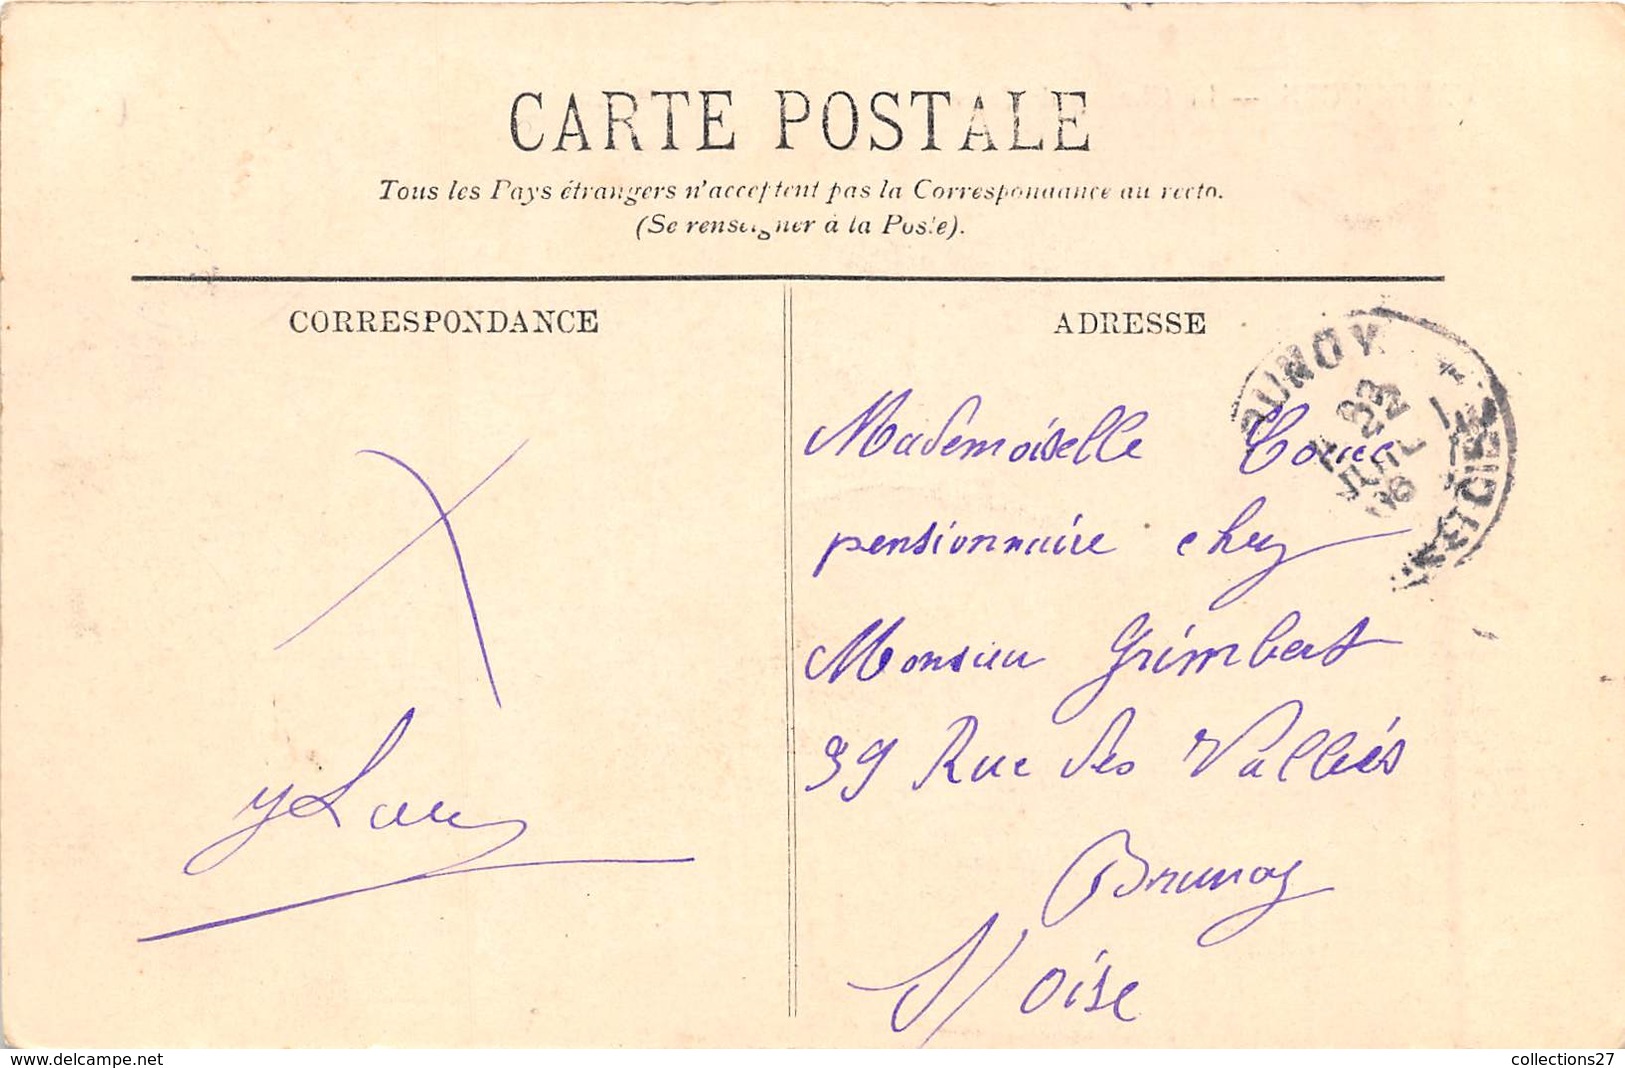 CARTE POSTALE
Tous les Pays étrangers n'acceptent pas la Correspondance au recto.
(Se renseigner à la Poste).
CORRESPONDANCE
ADRESSE
BRUNOY
22
JUIL
06
Mademoiselle
pensionnaire chez
Monsieur Grimbert
39 Rue des Vallées
Brunoy
S/ Oise
www.delcampe.net
collections27